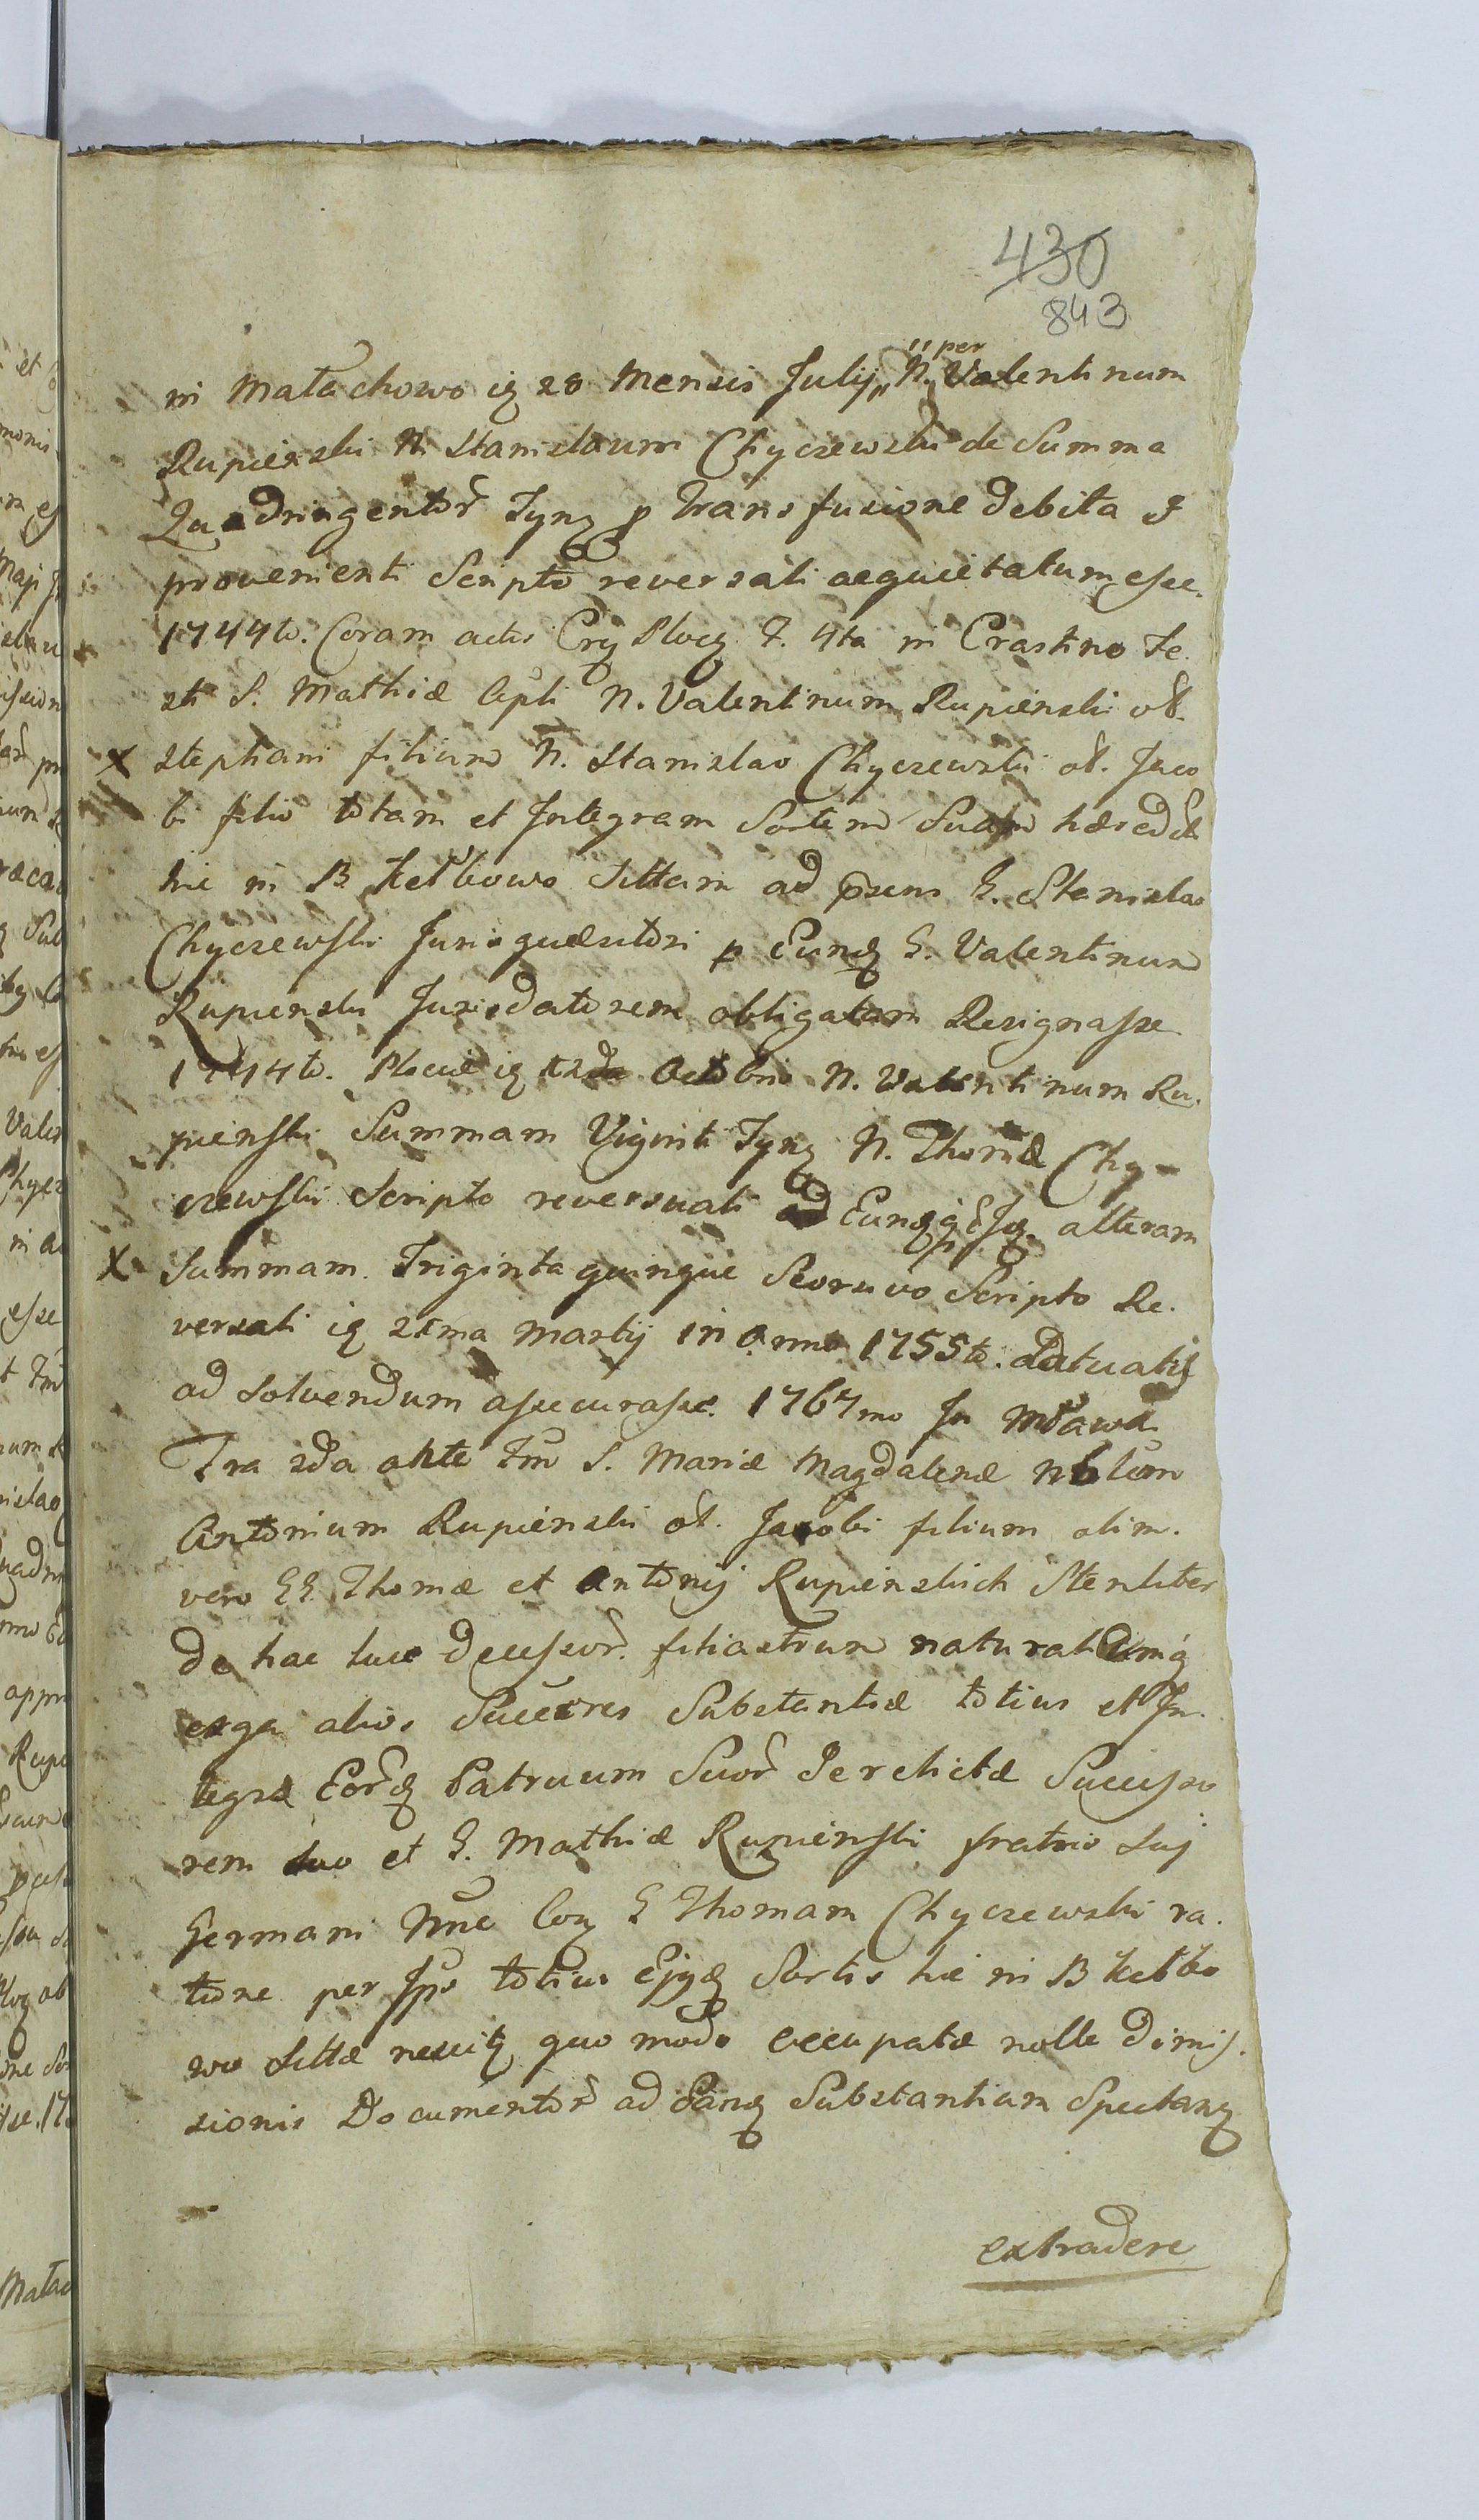 430
843
in Małachowo iq 20 Mensis Julij, N. per Valentinum
Rupienski N. Stanislaum Chyczewski de Summa
Quadringentor Tynq p Transfusione debita et
provenienti Scripto reversali aequietatum esse.
1744to. Coram actis Crq Plocq F. 4ta in Crastino Fe
sti S. Mathiæ Apli N. Valentinum Rupienski ol.
X Stephani filium N. Stanislao Chyczewski ol. Jaco
bi filio totam et Integram Sortem Suam hæred
hic in B Kełbowo Sittam ad psens G. Stanislao
Chyczewski Jurisquæsitori p Eundq G. Valentinum
Rupienski Jurisdatorem obligatam Resignasse
1744to. Plociæ iq 12da Octobris N. Valentinum Ru.
pienski Summam Viginti Tynq N. Thomæ Chy-
czewski Scripto reversuali ad Eundq alteram
X Summam Triginta quinque Seorsivo Scripto Re.
versali iq 21ma Martij in anno 1755to. datuatis
ad Solvendum assecurasse. 1767mo In Mława
Fra 2da ante Fm S. Mariæ Magdalenæ Nblem
Antonium Rupienski ol. Jacobi filium olim.
vero GG. Thomæ et Antonij Rupienskich Steriliter
de hac luce decessor. filiastrum naturalem
erga alios Succeres Substantiæ totius et In
tegræ Eordq Patruum Suor Derelictæ Successo
rem suo et G. Mathiæ Rupienski fratris Sui
Germani Nne Coq G Thomam Chyczewski ra.
tione per Ips totius Ejdq Sortis hic in B Kełbo
wo Sittæ nescitq quo modo occupatæ nolle dimis.
sionis Documentor ad Eandq Substantiam Spectanq
extradere